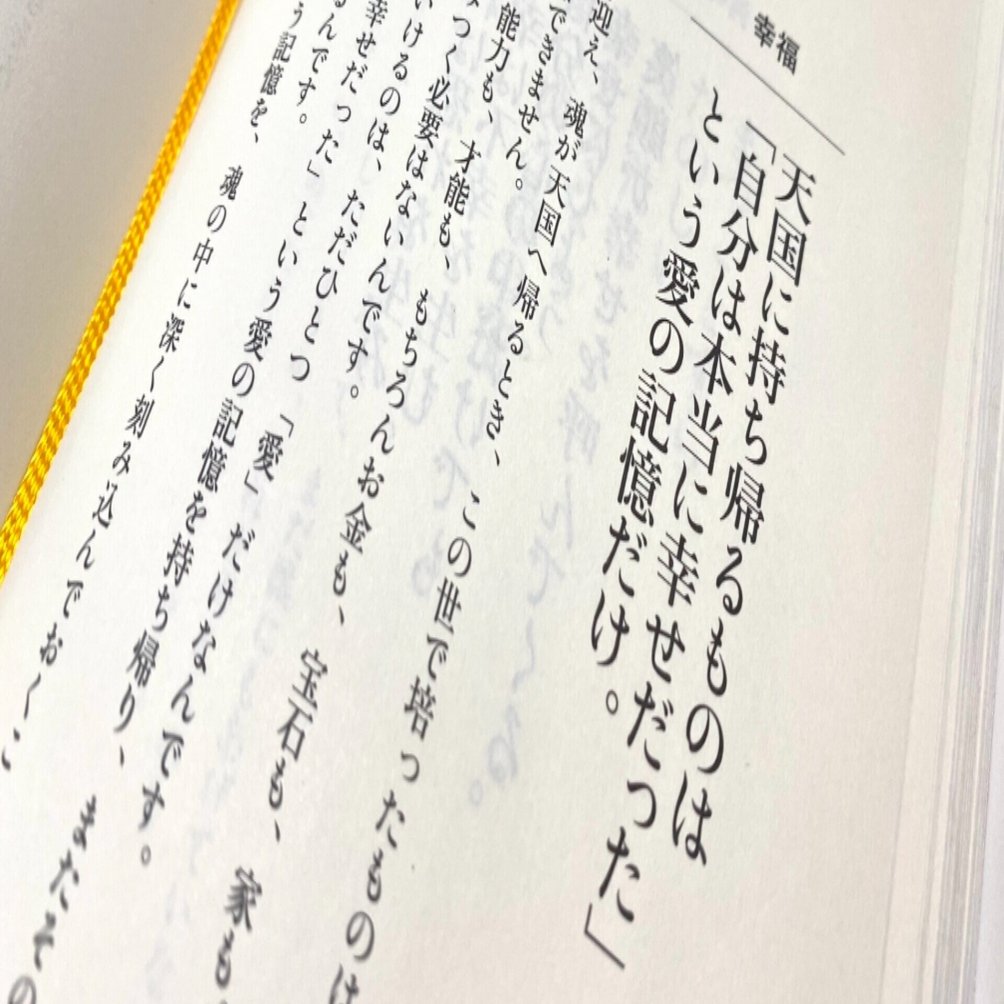 幸福
天国に持ち帰るものは
「自分は本当に幸せだった」
という愛の記憶だけ。
迎え、魂が天国へ帰るとき、この世で培ったものは
できません。
能力も、才能も、もちろんお金も、宝石も、家も
つく必要はないんです。
いけるのは、ただひとつ「愛」だけなんです。
幸せだった」という愛の記憶を持ち帰り、またその
るんです。
う記憶を、魂の中に深く刻み込んでおくこ